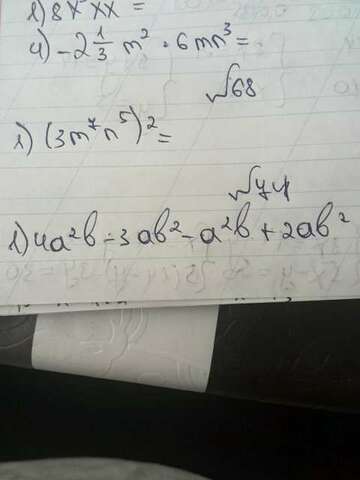 1) 8x² xx =
4) -2 1/3 m² · 6mn³ =
√68
1) (3m⁷n⁵)² =
√74
1) 4a²b - 3ab² - a²b + 2ab²